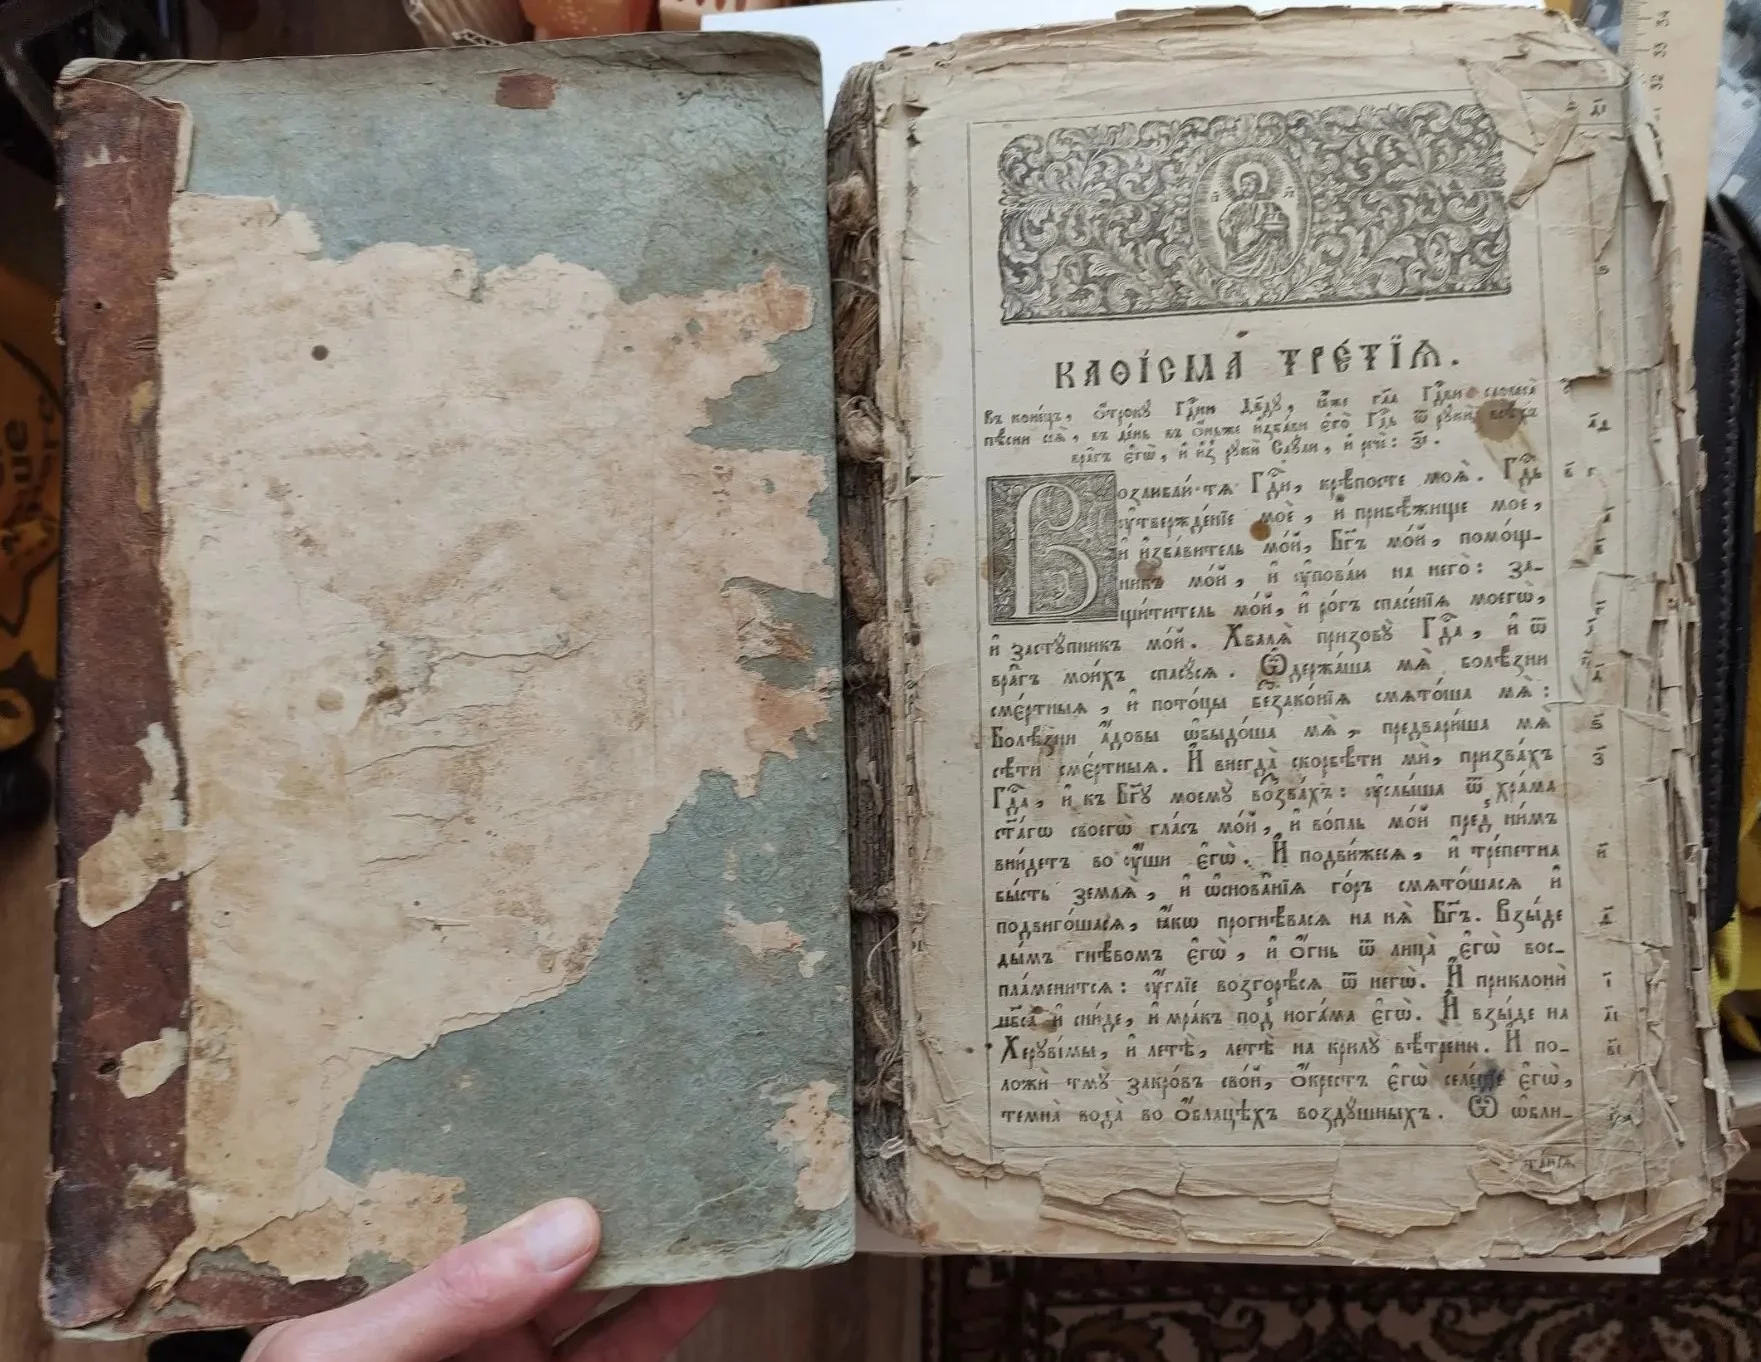 КАѲІ́СМА ТРЕ́ТІѦ.
Въ коне́цъ, Ѻ҆́трокꙋ Гдⷭ҇ню Дв҃дꙋ, ꙗ҆̀же гл҃а Гдⷭ҇ви словеса̀
пѣ́сни сеѧ̀, въ де́нь въ ѻ҆́ньже и҆зба́ви є҆го̀ Гдⷭ҇ь ѿ рꙋкѝ всѣ́хъ
вра̑гъ є҆гѡ̀, и҆ и҆з̾ рꙋкѝ Саꙋ́ли, и҆ речѐ: з҃і.
Возлюблю́ тѧ Гдⷭ҇и, крѣ́посте моѧ̀. Гдⷭ҇ь
ᲂу҆твержде́нїе моѐ, и҆ прибѣ́жище моѐ,
и҆ и҆зба́витель мо́й, Бг҃ъ мо́й, помо́щ-
никъ мо́й, и҆ ᲂу҆пова́ю на него̀: за-
щи́титель мо́й, и҆ ро́гъ спасе́нїѧ моегѡ̀,
и҆ застꙋ́пникъ мо́й. Хвалѧ̀ призовꙋ̀ Гдⷭ҇а, и҆ ѿ
вра̑гъ мои́хъ спасꙋ́сѧ. Ѡ҆держа́ша мѧ̀ болѣ̑зни
сме́ртныѧ, и҆ пото́цы беззако́нїѧ смѧто́ша мѧ̀:
Болѣ̑зни а҆́довы ѡ҆быдо́ша мѧ̀, предвари́ша мѧ̀
сѣ̑ти сме́ртныѧ. И҆ внегда̀ скорбѣ́ти мѝ, призва́хъ
Гдⷭ҇а, и҆ къ Бг҃ꙋ моемꙋ̀ воззва́хъ: ᲂу҆слы́ша ѿ хра́ма
ст҃а́гѡ своегѡ̀ гла́съ мо́й, и҆ во́пль мо́й пред̾ ни́мъ
вни́детъ во ᲂу҆́шы є҆гѡ̀. И҆ подви́жесѧ, и҆ тре́петна
бы́сть землѧ̀, и҆ ѡ҆снова̑нїѧ го́ръ смѧто́шасѧ и҆
подвиго́шасѧ, ꙗ҆́кѡ прогнѣ́васѧ на нѧ̀ Бг҃ъ. Взы́де
ды́мъ гнѣ́вомъ є҆гѡ̀, и҆ ѻ҆́гнь ѿ лица̀ є҆гѡ̀ вос-
пла́менитсѧ: ᲂу҆́глїе возгорѣ́сѧ ѿ негѡ̀. И҆ приклонѝ
нб҃са̀ и҆ сни́де, и҆ мра́къ под̾ нога́ма є҆гѡ̀. И҆ взы́де на
Херꙋві́мы, и҆ летѣ̀, летѣ̀ на крилꙋ̀ вѣ́треню. И҆ по-
ложѝ тмꙋ̀ закро́въ сво́й, ѻ҆́крестъ є҆гѡ̀ селе́нїе є҆гѡ̀,
темна̀ вода̀ во ѻ҆́блацѣхъ возд́ꙋшныхъ. Ѿ ѡ҆блиⷭ-
та́нїѧ